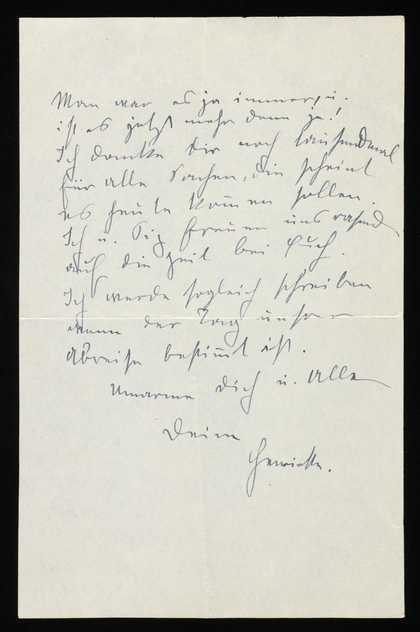 Man war es ja immer,
ist es jetzt mehr denn je!
Ich danke Dir noch tausendmal
für alle Sachen, die scheint
es heute kommen sollen.
Ich u. freuen uns rasend
auf die Zeit bei Euch.
Ich werde sogleich schreiben
wenn der Tag unsrer
Abreise bestimmt ist.
Umarme Dich u. Alle
Deine